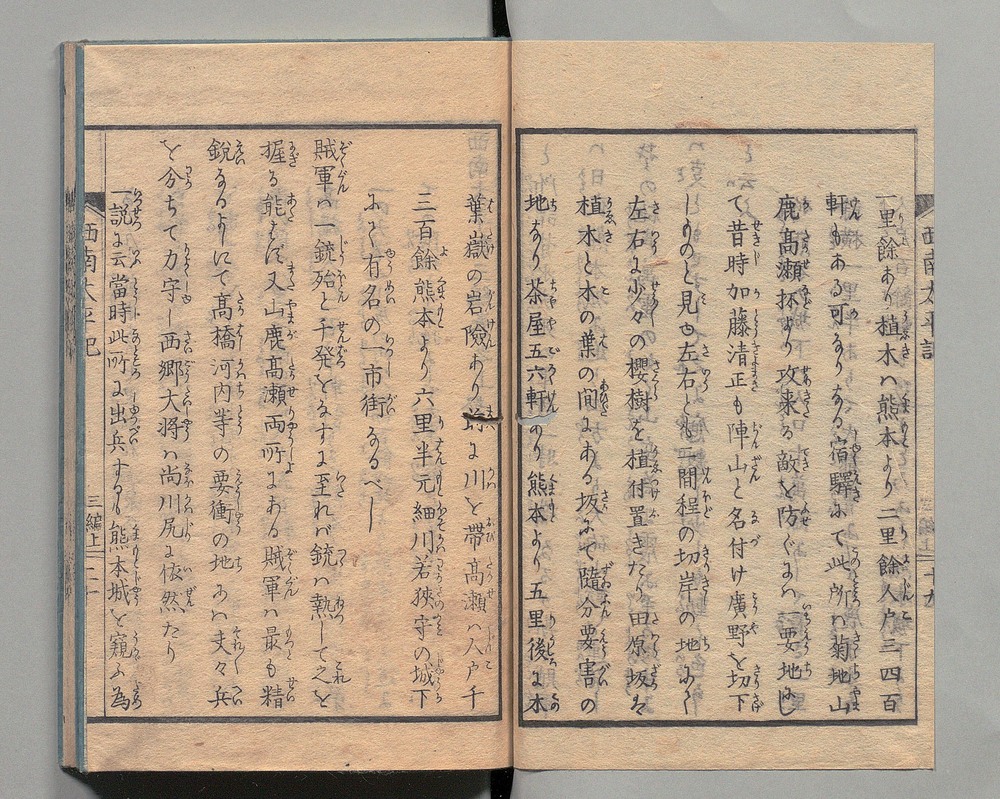 一里餘あり植木ハ熊本より二里餘人戸三四百
軒もある可なりなる宿驛にて此所ハ菊地山
鹿高瀬抔より攻来る敵を防ぐにハ一要地にし
て昔時加藤清正も陣山と名付け廣野を切下
しものと見も左右とも一間程の切岸の地にして
左右に少々の櫻樹を植付置きたり田原坂は
植木と木の葉の間にある坂にて隨分要害の
地なり茶屋五六軒あり熊本より五里後に木
葉嶽の岩險あり前に川を帯高瀬ハ人戸千
三百餘熊本より六里半元細川若狭守の城下
にて有名の一市街なるべし
賊軍ハ一銃殆と千発をなすに至れバ銃ハ熱して之を
握る能はず又山鹿高瀬両所にある賊軍ハ最も精
鋭なるよしにて高橋河内等の要衝の地にハ夫々兵
を分ちて力守し西郷大将ハ尚川尻に依然たり
一説に云當時此所に出兵するも熊本城を窺ふ為
西南太平記
三編上
二十
西南太平記
三編上
十九